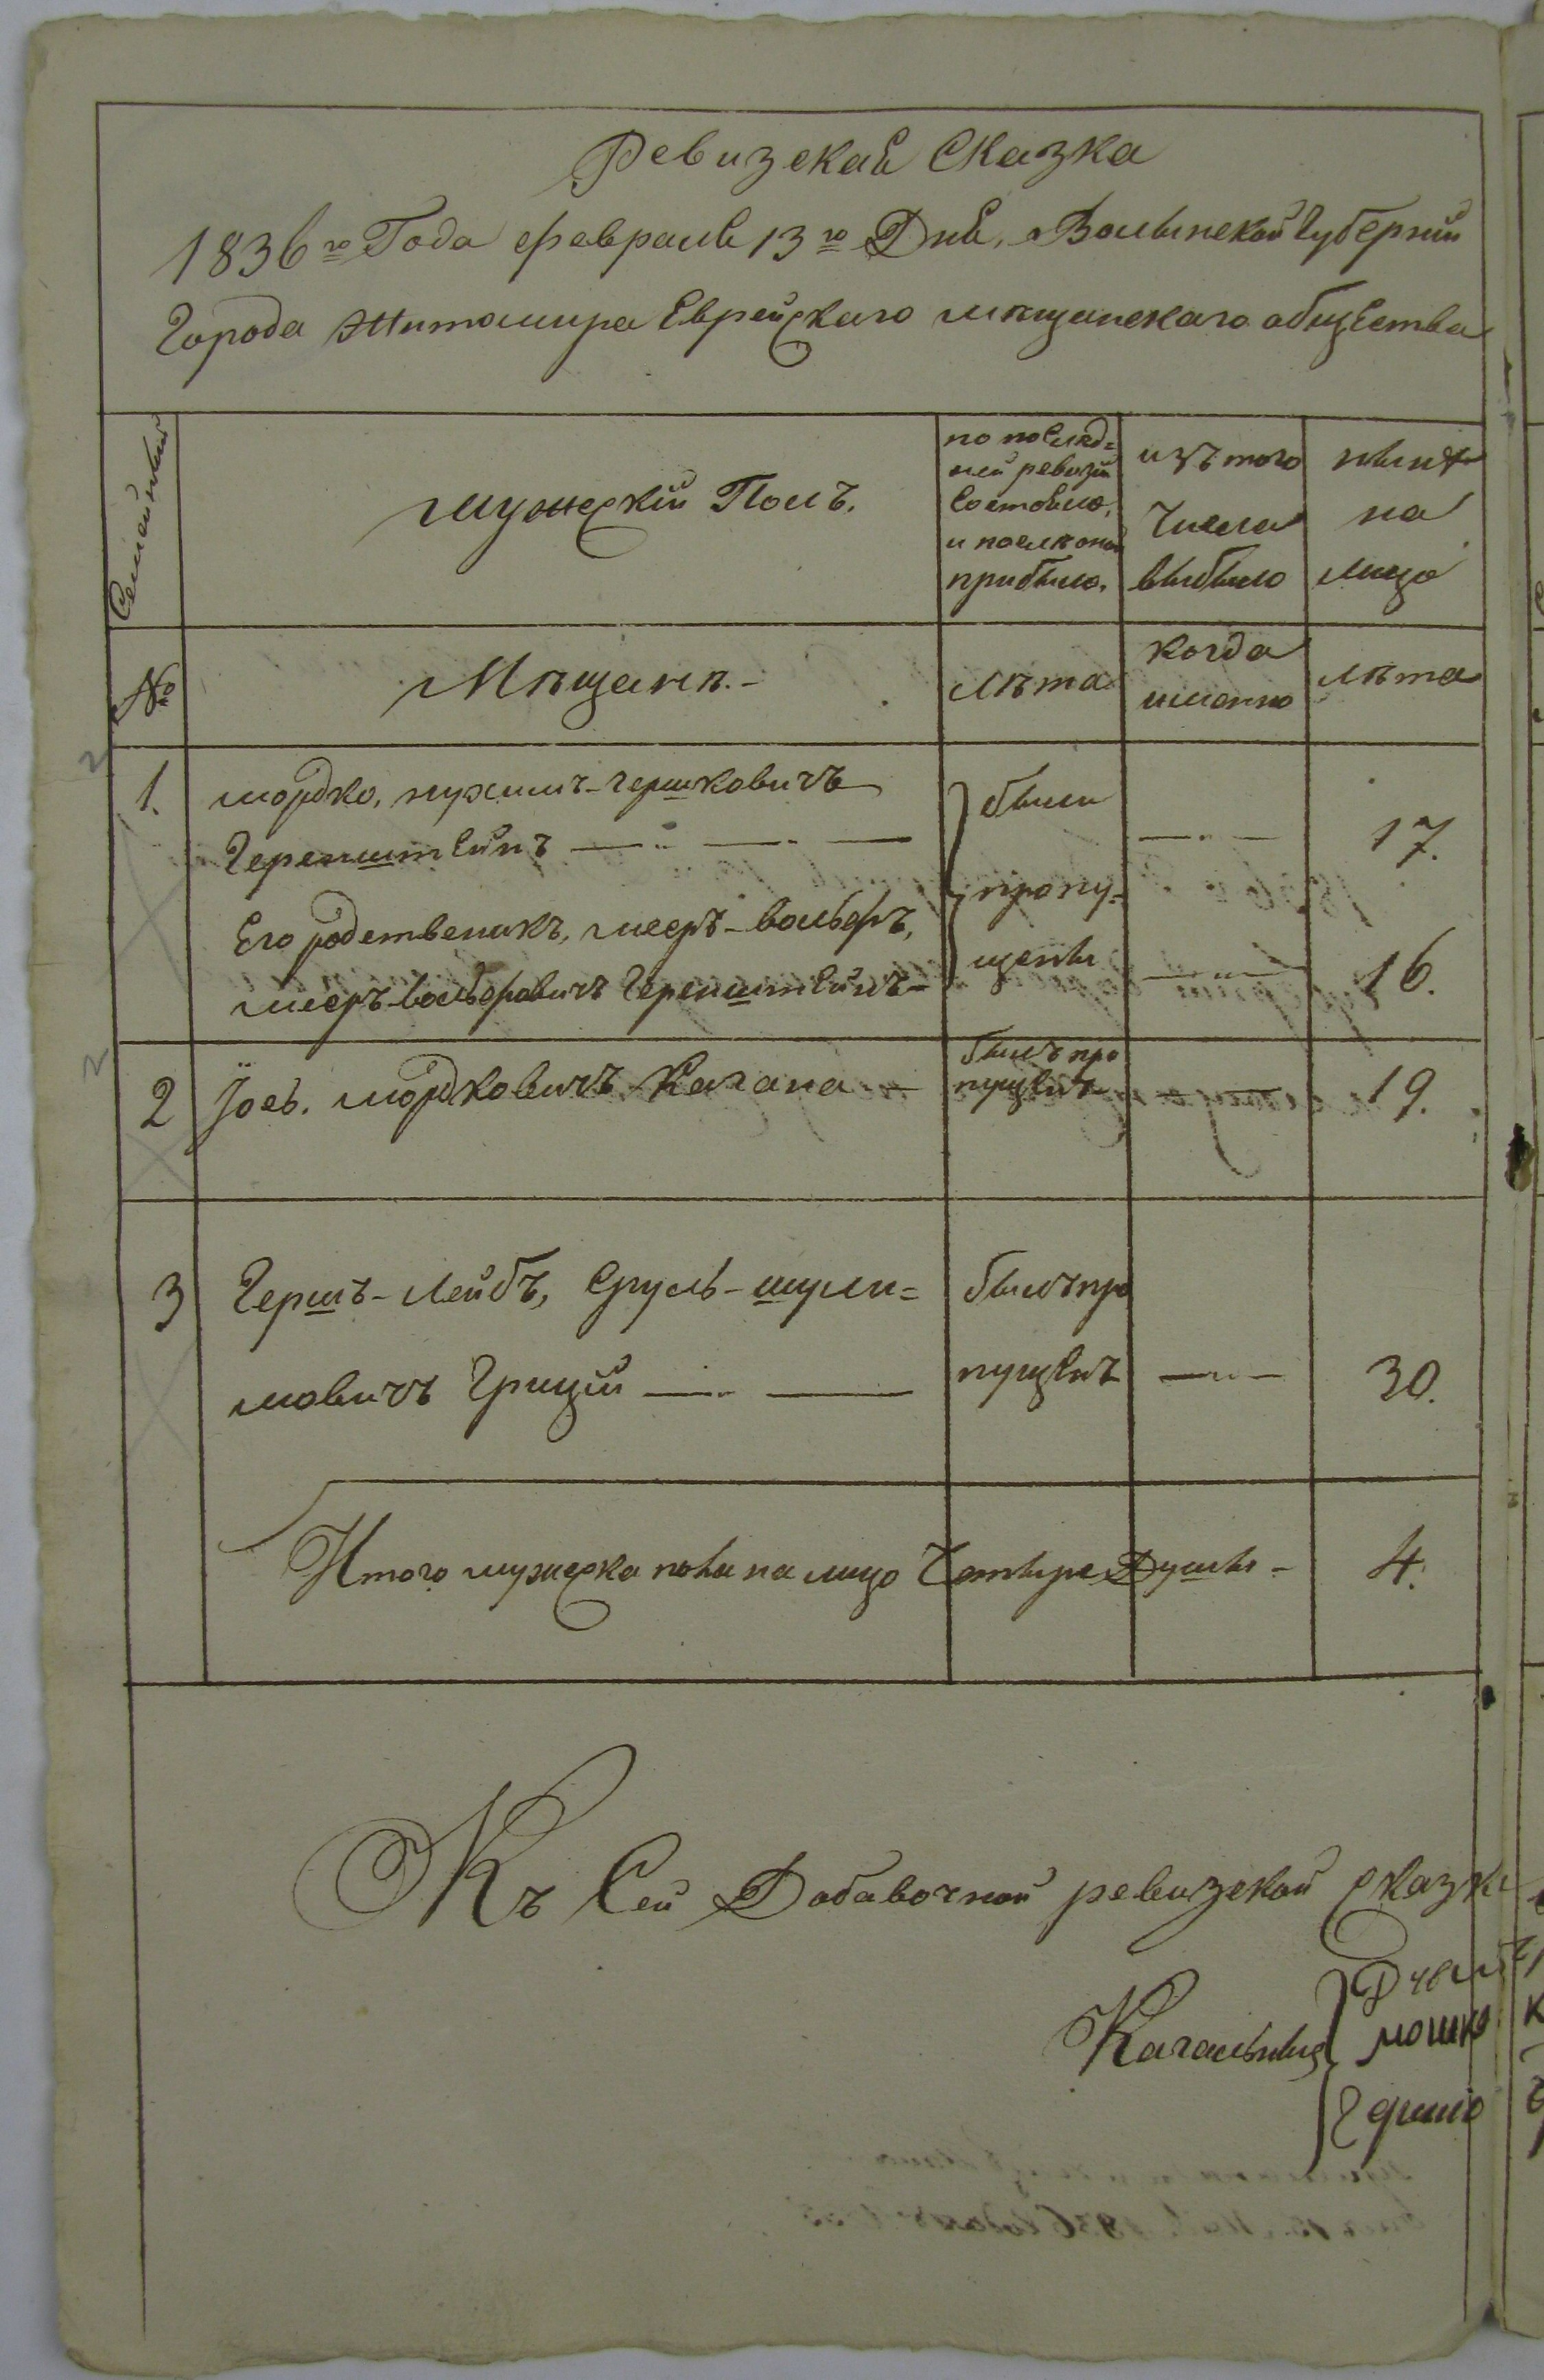 Ревизская Сказка
1836го Года февраля 13го Дня, Волынской Губернии
Города Житомира Еврейскаго мѣщанскаго общества
Семей
мужескій Полъ.
по послѣд=
ней ревизіи
Состояло,
и послѣ оной
прибыло.
изъ того
Числа
выбыло
нынѣ
на
лицо
№
Мѣщанѣ.-
лѣта
когда
именно
лѣта
1.
мордко, нухимъ-гершковичъ
Геренштейнъ
были
пропу=
щены
17.
Его родственикъ, мееръ-вольфъ,
меръ-вольфовичъ Геренштейнъ-
16.
2
Іось. мордковичъ Кагана
былъ про
пущенъ
19.
3
Гершъ-Лейбъ, Сруль-шули=
мовичъ Грицій
былъ про
пущенъ
30.
Итого мужеска пола на лицо Четыре Душы -
4.
Къ Сей Добавочной ревизской сказки
Кагальныя
мошко